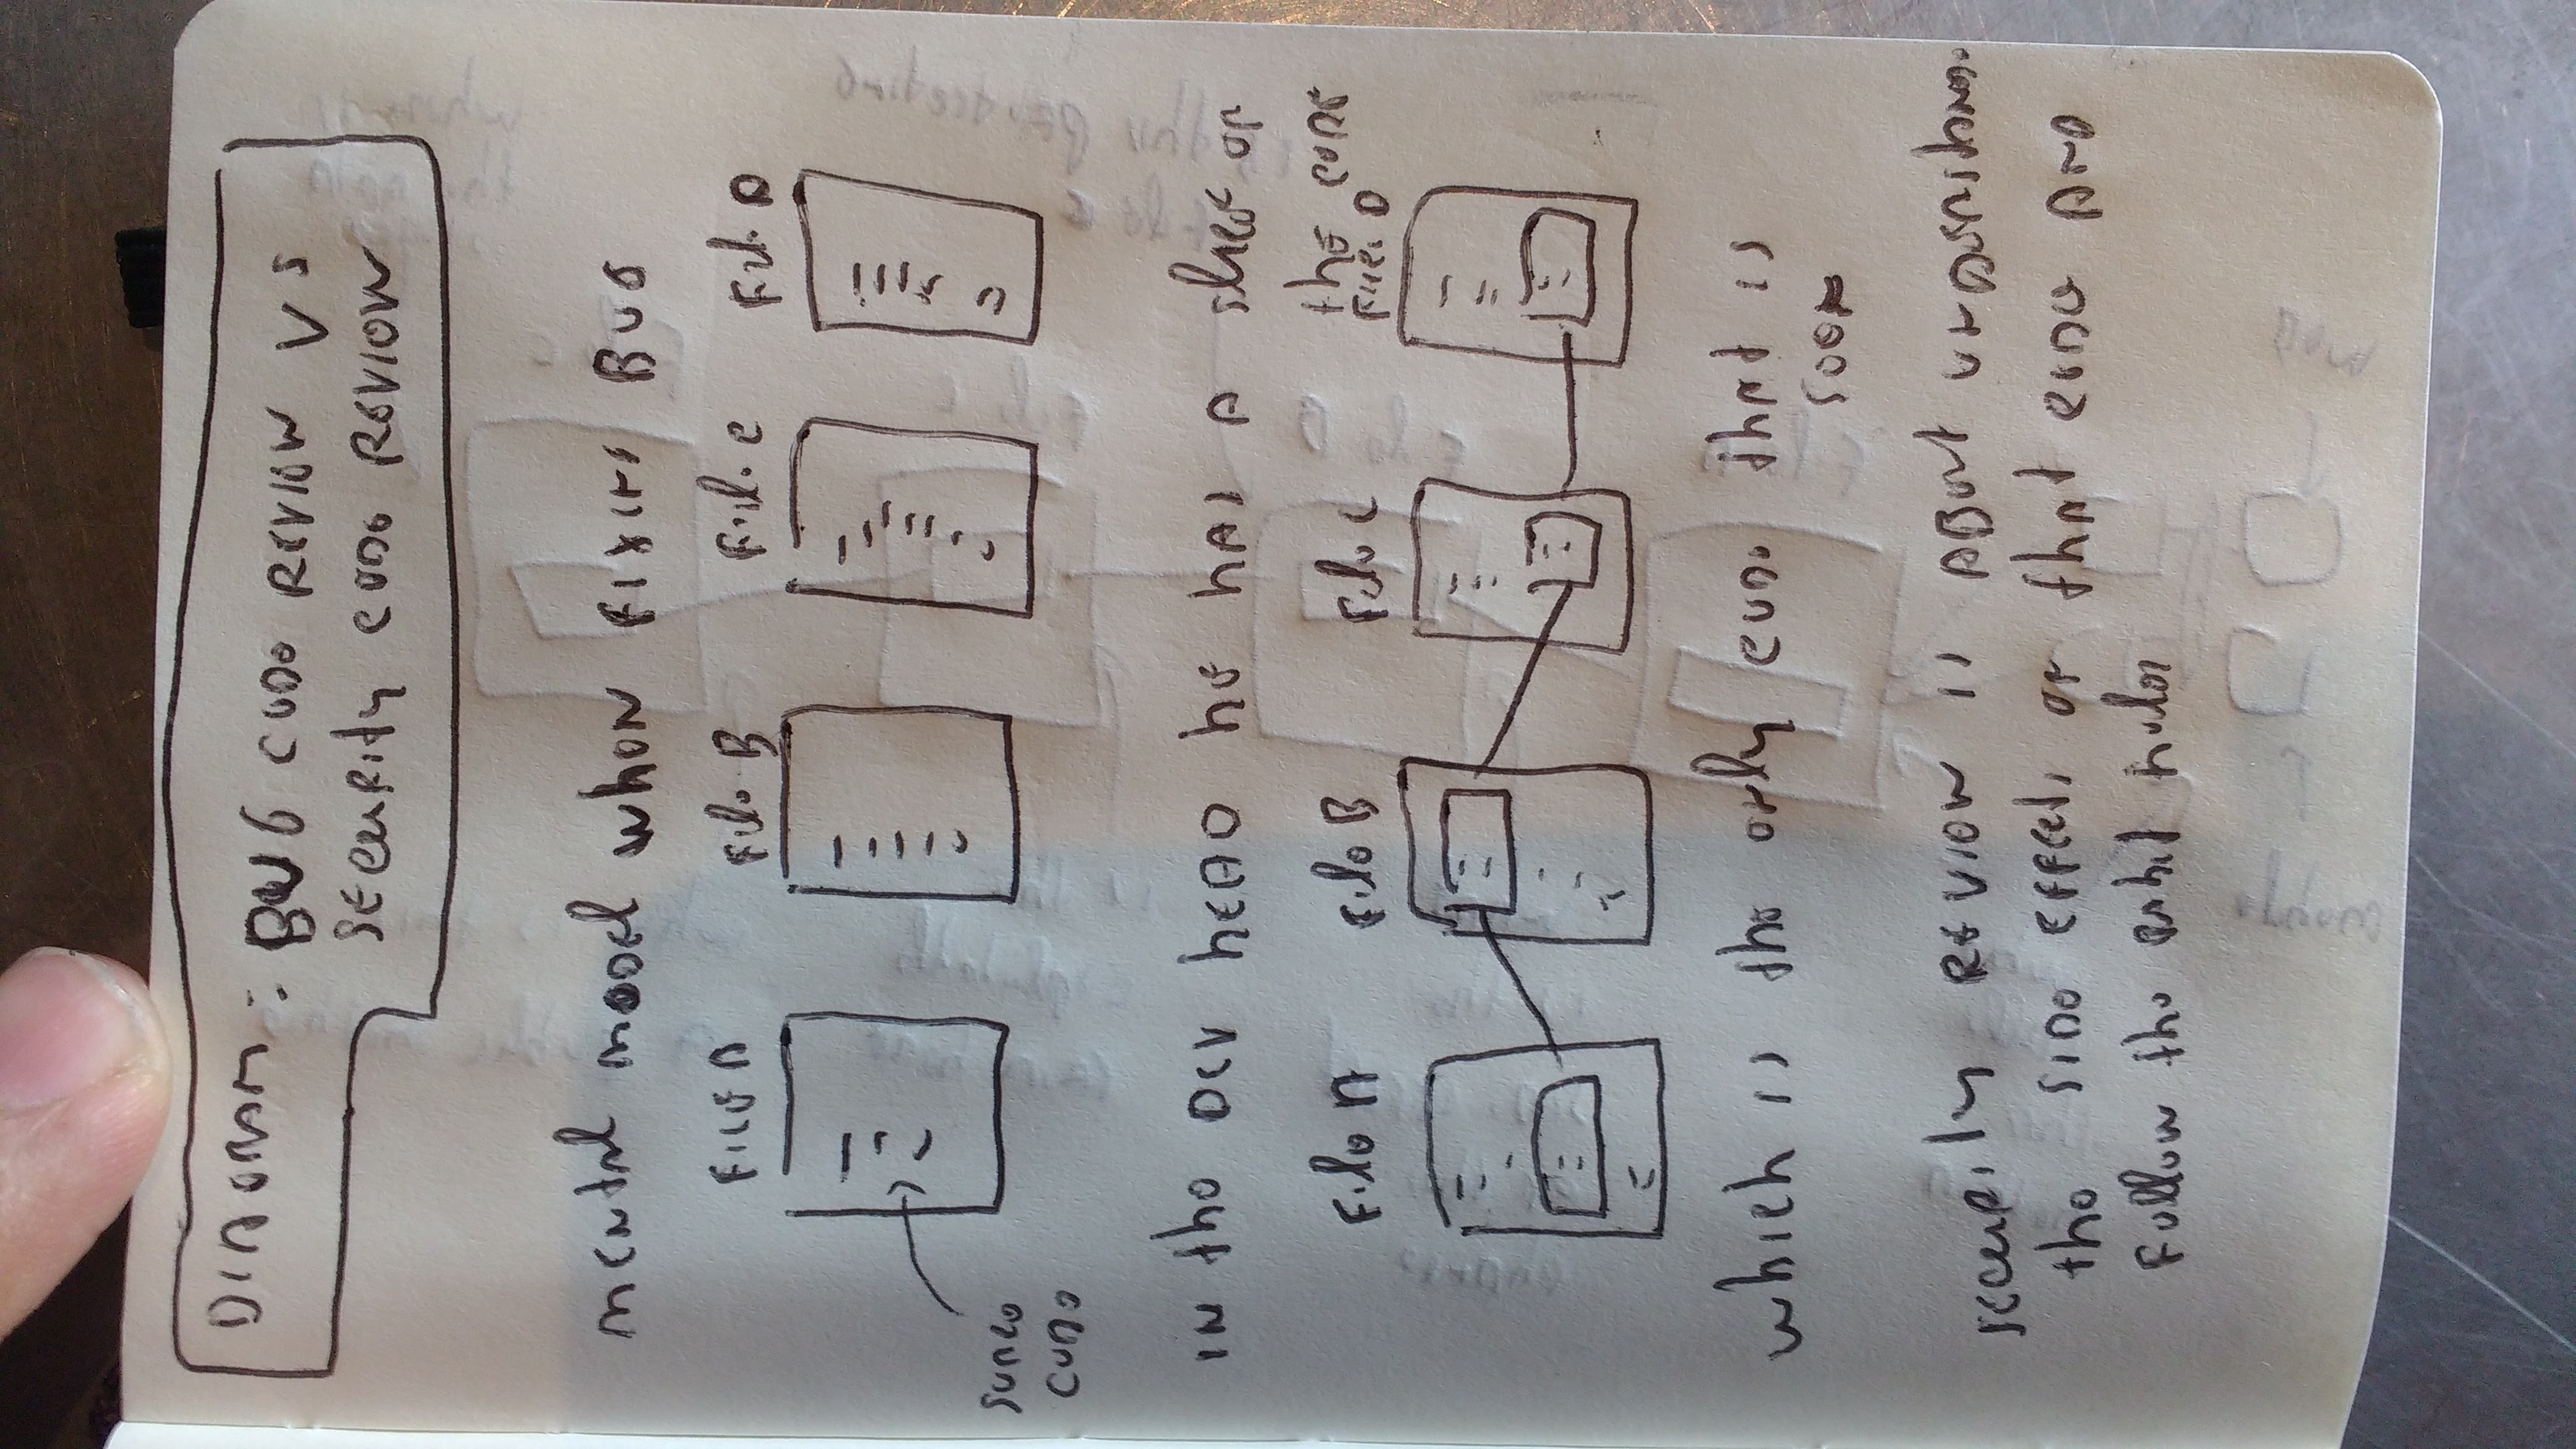 Diagram: BUG CODE REVIEW VS
SECURITY CODE REVIEW
mental model when Fixing BUG
File A File B File C File D
SOURCE
CODE
IN the DEV HEAD he has A slice of
the CODE
File A File B File C File D
which is the only code that is
SEEN
Security REVIEW is ABout understanding
the SIDE Effects of that code AND
Follow the rabit holes